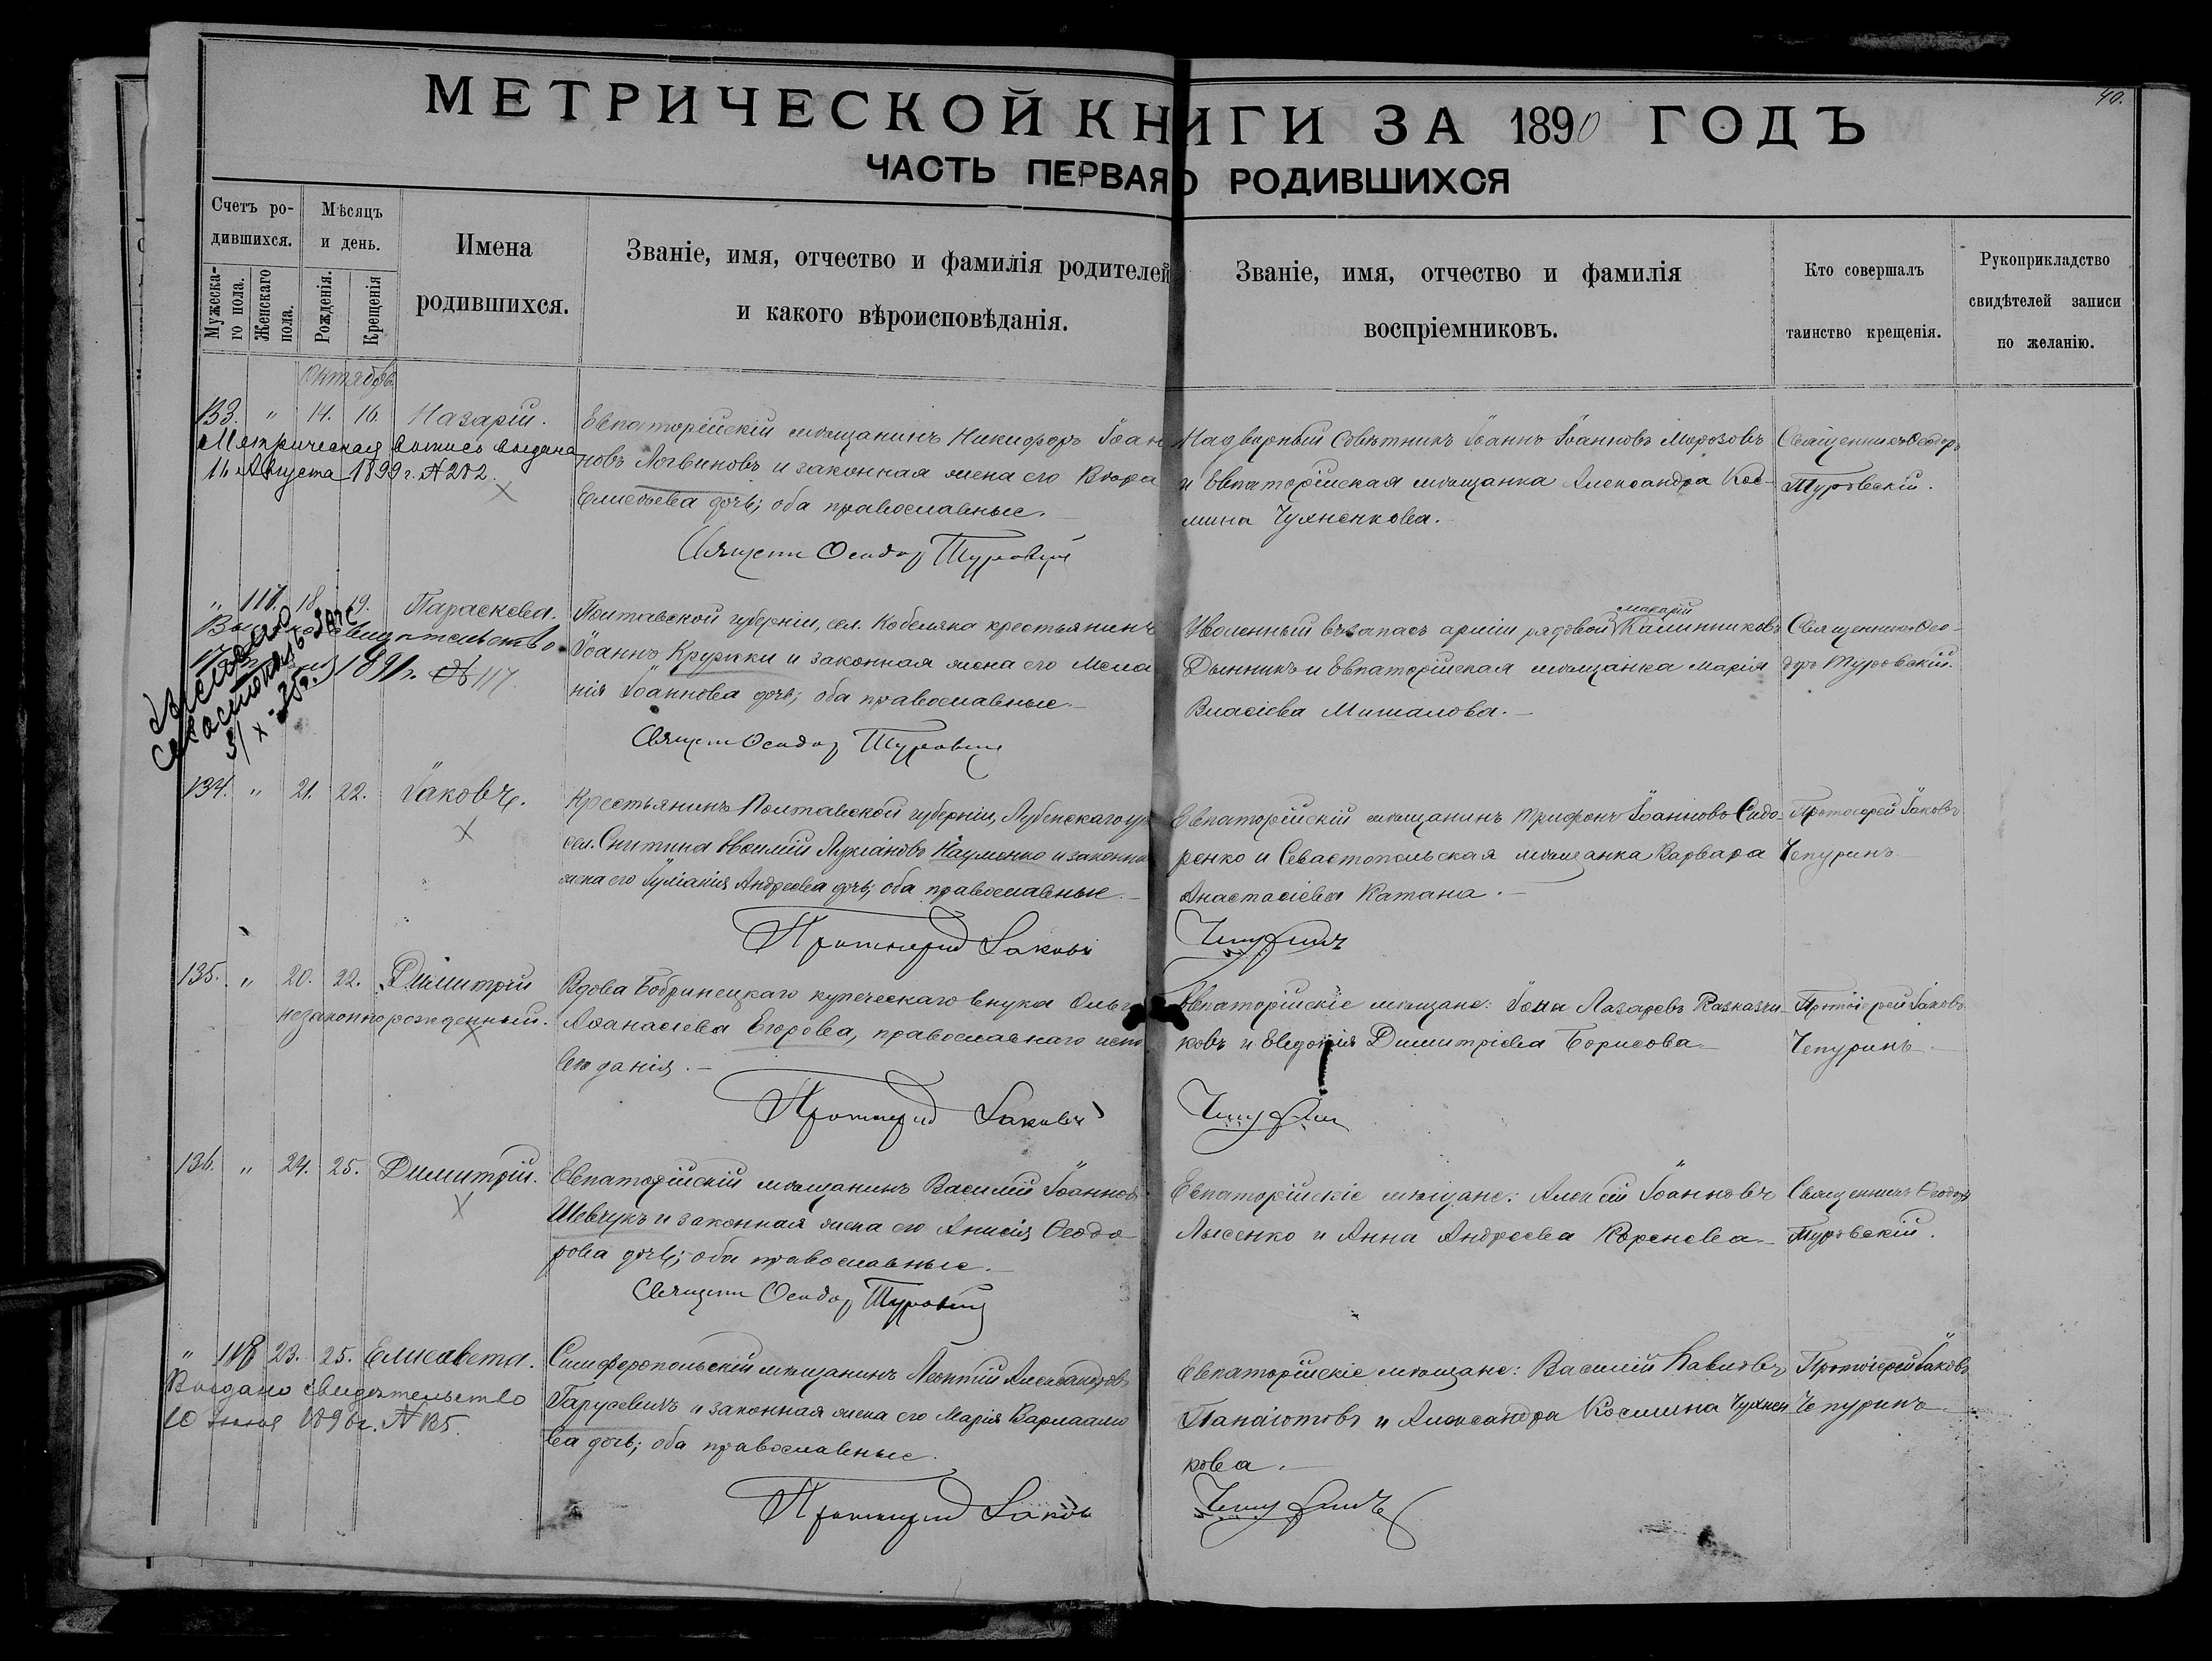 40.
МЕТРИЧЕСКОЙ КНИГИ ЗА 1890 ГОДЪ
ЧАСТЬ ПЕРВАЯ О РОДИВШИХСЯ
Счетъ ро-
дившихся.
Мужеска-
го пола.
Женскаго
пола.
Мѣсяцъ
и день.
Рожденія.
Крещенія
Имена
родившихся.
Званіе, имя, отчество и фамилія родителей
и какого вѣроисповѣданія.
Званіе, имя, отчество и фамилія
воспріемниковъ.
Кто совершалъ
таинство крещенія.
Рукоприкладство
свидѣтелей записи
по желанію.
Октябрь
133. " 14. 16. Назарій.
Метрическая выпись выдана
16 Августа 1899 г. № 202.
Евпаторійскій мѣщанинъ Никифоръ Іоан
новъ Логвиновъ и законная жена его Вѣра
Елисѣева дочь; оба православные.
Священ Ѳеодор Туровскій
Надворный Совѣтникъ Іоаннъ Іоанновъ Морозовъ
и Евпаторійская мѣщанка Александра Кос-
мина Чухненкова.
Священникъ Ѳеодоръ
Туровскій.
" 117. 18. 19. Параскева.
Выдано свидѣтельство
1891 г. № 117.
Полтавской губерніи, сел. Кобеляка крестьянинъ
Іоаннъ и законная жена его Мела
нія Іоаннова дочь; оба православные.
Священ Ѳеодор Туровскій
Уволенный въ запасъ арміи рядовой Макарій Калинниковъ
Дынникъ и Евпаторійская мѣщанка Марія
Власіева
Священникъ Ѳео-
доръ Туровскій.
134. " 21. 22. Іаковъ.
Крестьянинъ Полтавской губерніи, Лубенскаго у
сел. Снитина Василій Лукіановъ Науменко и законная
жена его Іуліанія Андреева дочь; оба православные.
Протоіерей Іаковъ Чепуринъ
Евпаторійскій мѣщанинъ Трифонъ Іоанновъ Сидо-
ренко и Севастопольская мѣщанка Варвара
Анастасіева Катана.
Протоіерей Іаковъ
Чепуринъ
135. " 20. 22. Димитрій
незаконнорожденный.
Вдова Бобринецкаго купеческаго внука Ольга
Аѳанасіева Егорова, православнаго испо
вѣданія.
Протоіерей Іаковъ Чепуринъ
Евпаторійскіе мѣщане: Іона Лазаревъ Разказчи-
ковъ и Евдокія Димитріева Борисова.
Протоіерей Іаковъ
Чепуринъ.
136. " 24. 25. Димитрій.
Евпаторійскій мѣщанинъ Василій Іоанновъ
Шевчукъ и законная жена его Анисія Ѳеодо-
рова дочь; оба православные.
Священ Ѳеодор Туровскій
Евпаторійскіе мѣщане: Алексѣй Іоанновъ
Лысенко и Анна Андреева Коренева.
Священникъ Ѳеодоръ
Туровскій.
" 118 23. 25. Елисавета.
Выдано свидѣтельство
10 Іюня № 135.
Симферопольскій мѣщанинъ Леонтій Александровъ
Гарусевичъ и законная жена его Марія Варлаамо
ва дочь; оба православные.
Протоіерей Іаковъ Чепуринъ
Евпаторійскіе мѣщане: Василій Павловъ
Панаіотовъ и Александра Космина Чухнен
кова.
Протоіерей Іаковъ
Чепуринъ.